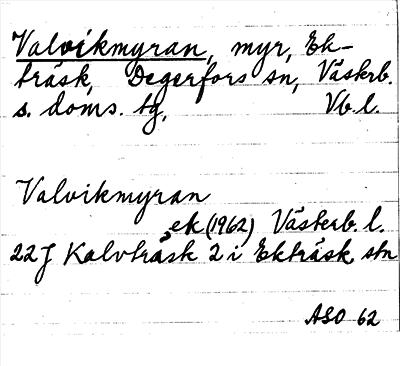 Valvikmyran, myr, Ek-
träsk, Degerfors sn, Västerb.
s. doms. tg, Vb. l.
Valvikmyran
ek (1962) Västerb. l.
22J Kalvträsk 2 i Ekträsk, stn
ASO 62